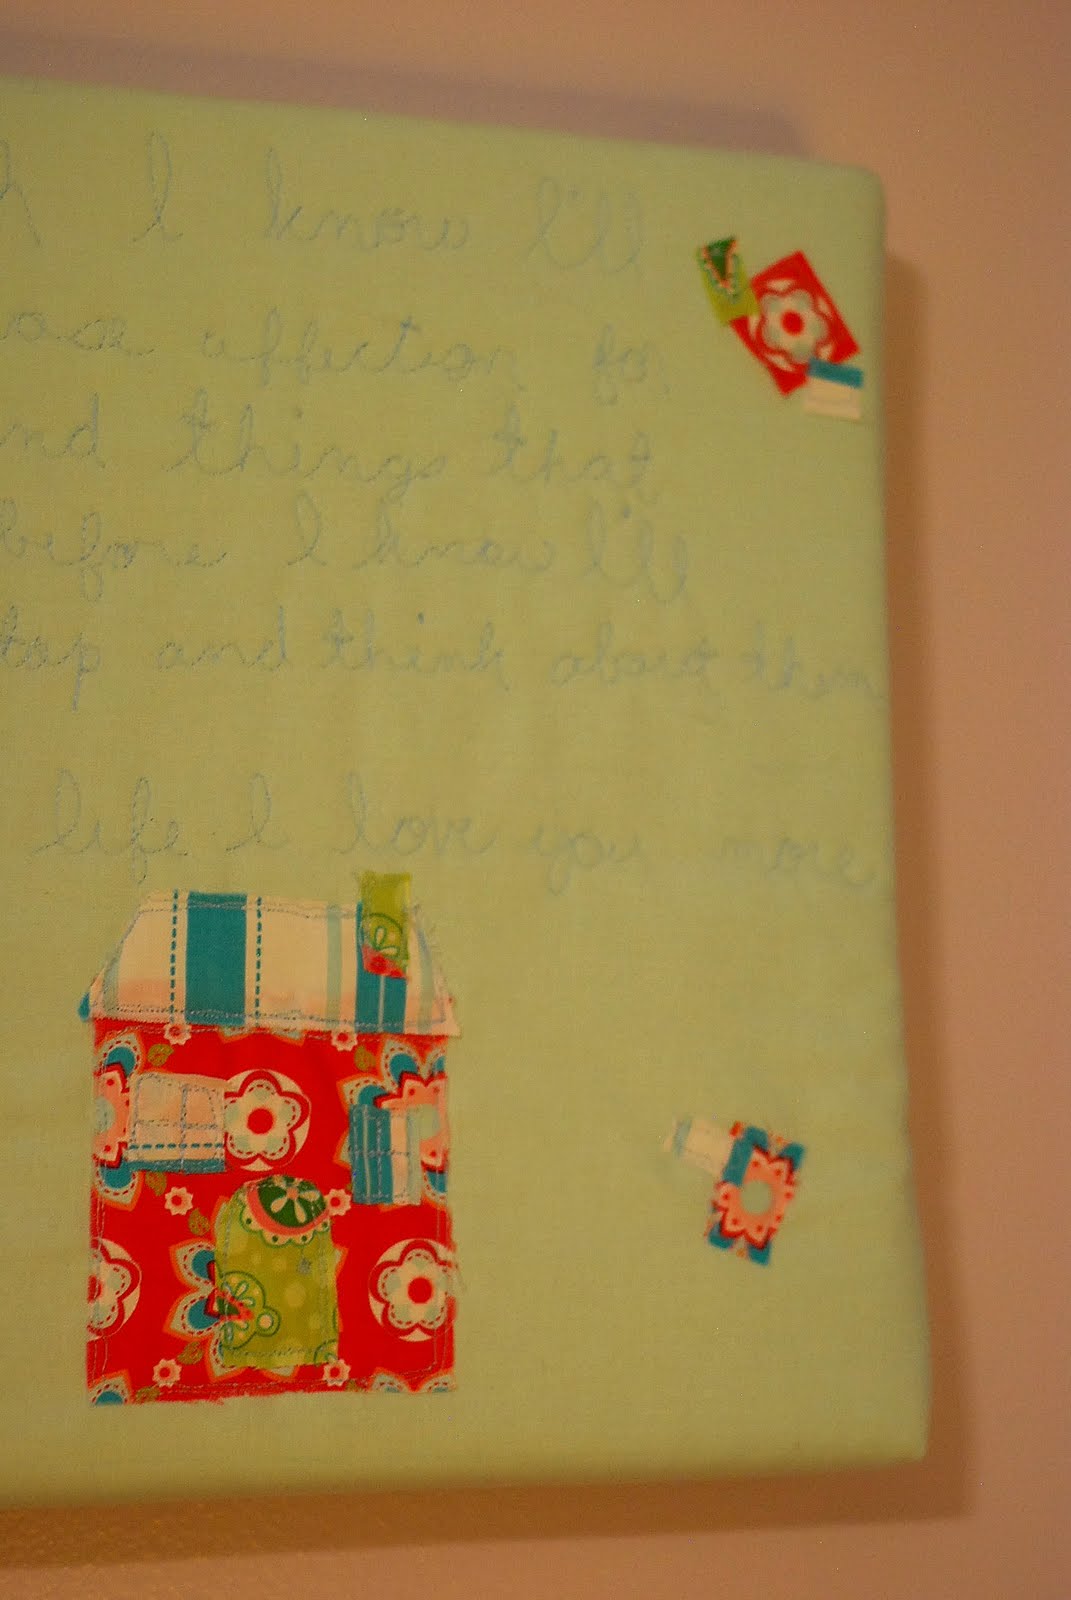 I know I'll
affection for
and things that
before I know I'll
stop and think about them
life I love you more